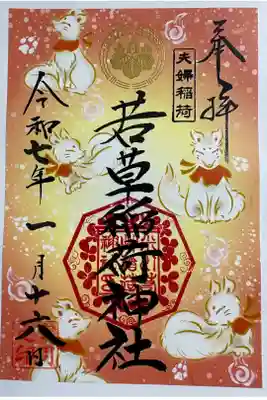 奉拝
夫婦稲荷
若草稲荷神社
令和七年一月十六日